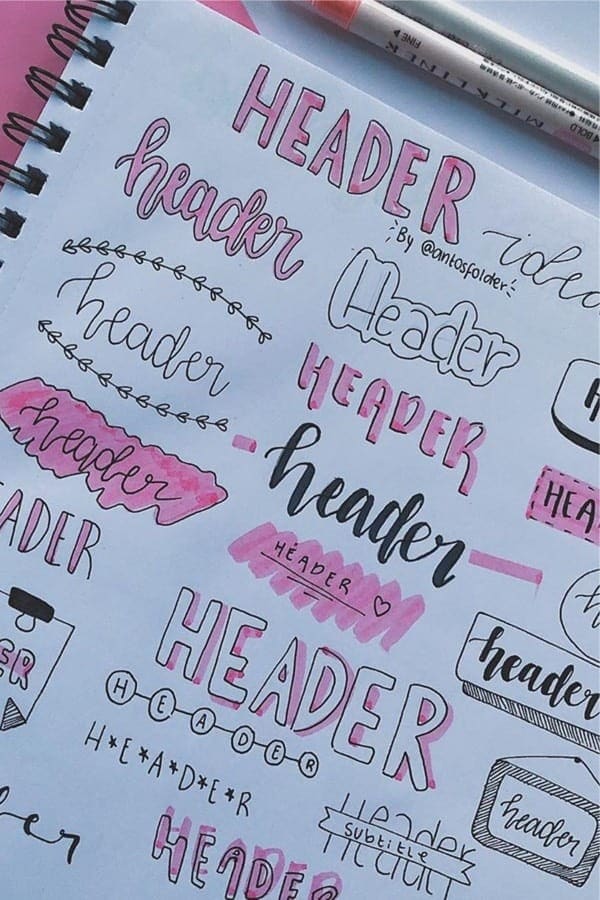 MILKLINER
FINE
BOLD
HEADER
ideas
By @antosfolder
header
Header
header
HEADER
header
header
HEADER
HEADER
header
HEADER
H-E-A-D-E-R
H*E*A*D*E*R
header
Header
subtitle
HEADER